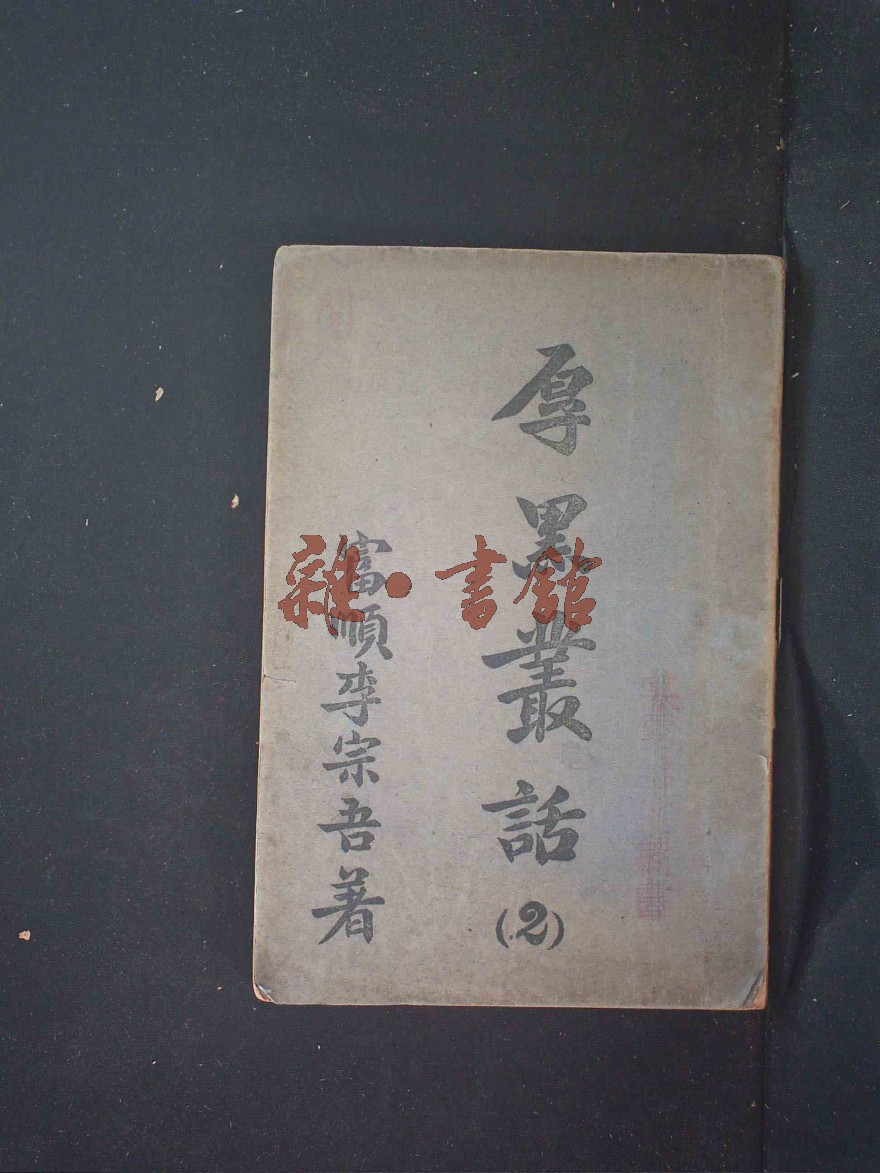 厚黑叢話
(2)
富順李宗吾著
雜·書館